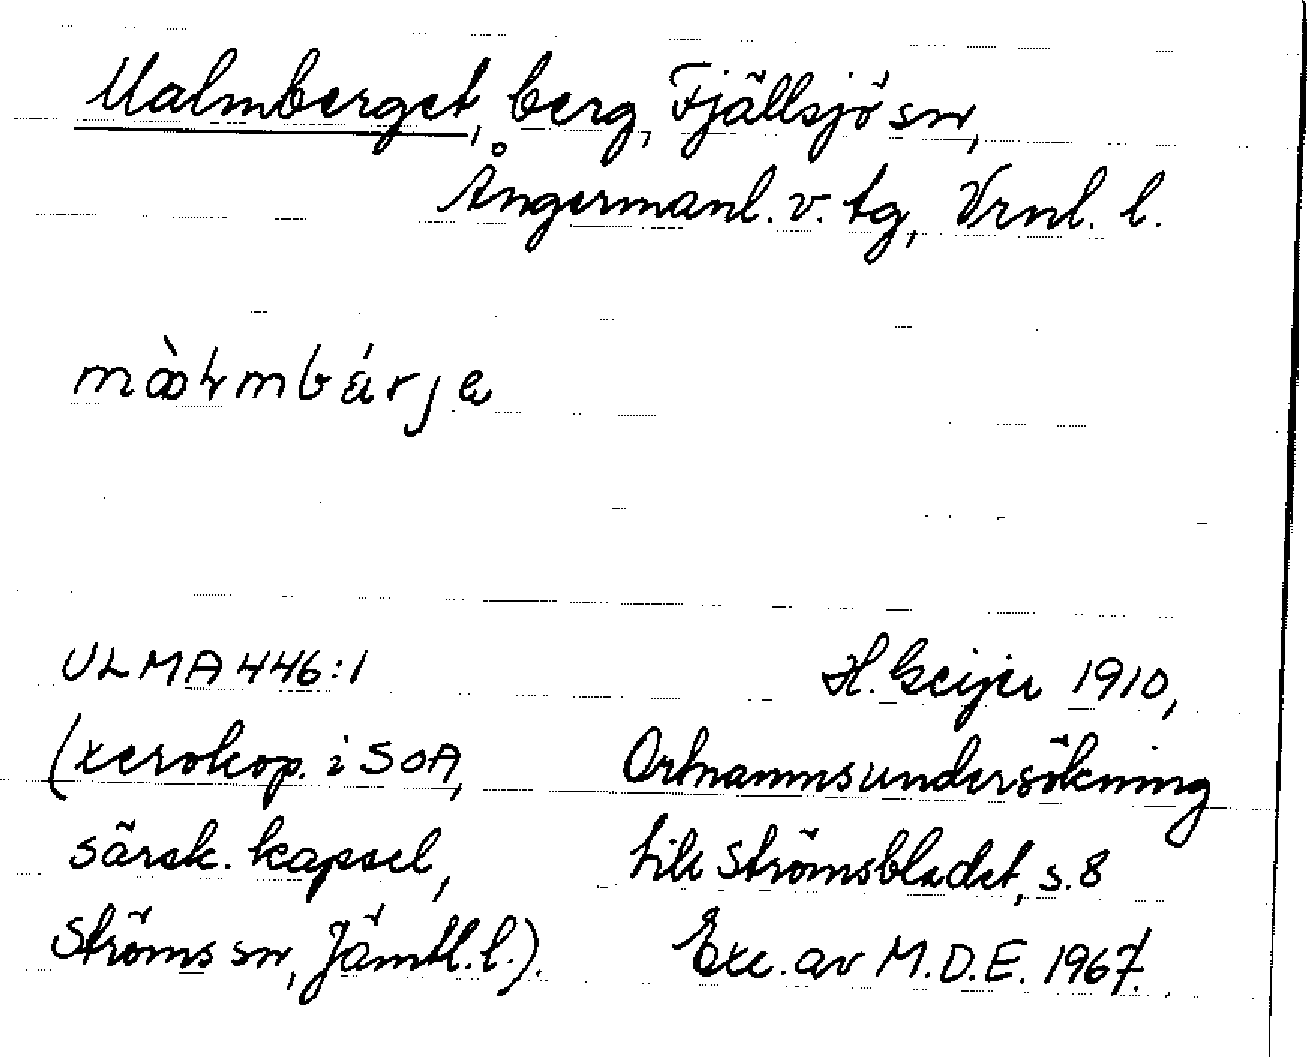 Malmberget, berg, Fjällsjö sn,
Ångermanl. v. tg, Vrnl. l.
ULMA 446:1
H. Geijer 1910,
(xerokop. i SOA,
Ortnamnsundersökning
särsk. kapsel,
till Strömsbladet, s. 8
Ströms sn, Jämtl. l.).
Exc. av M.D.E. 1967.